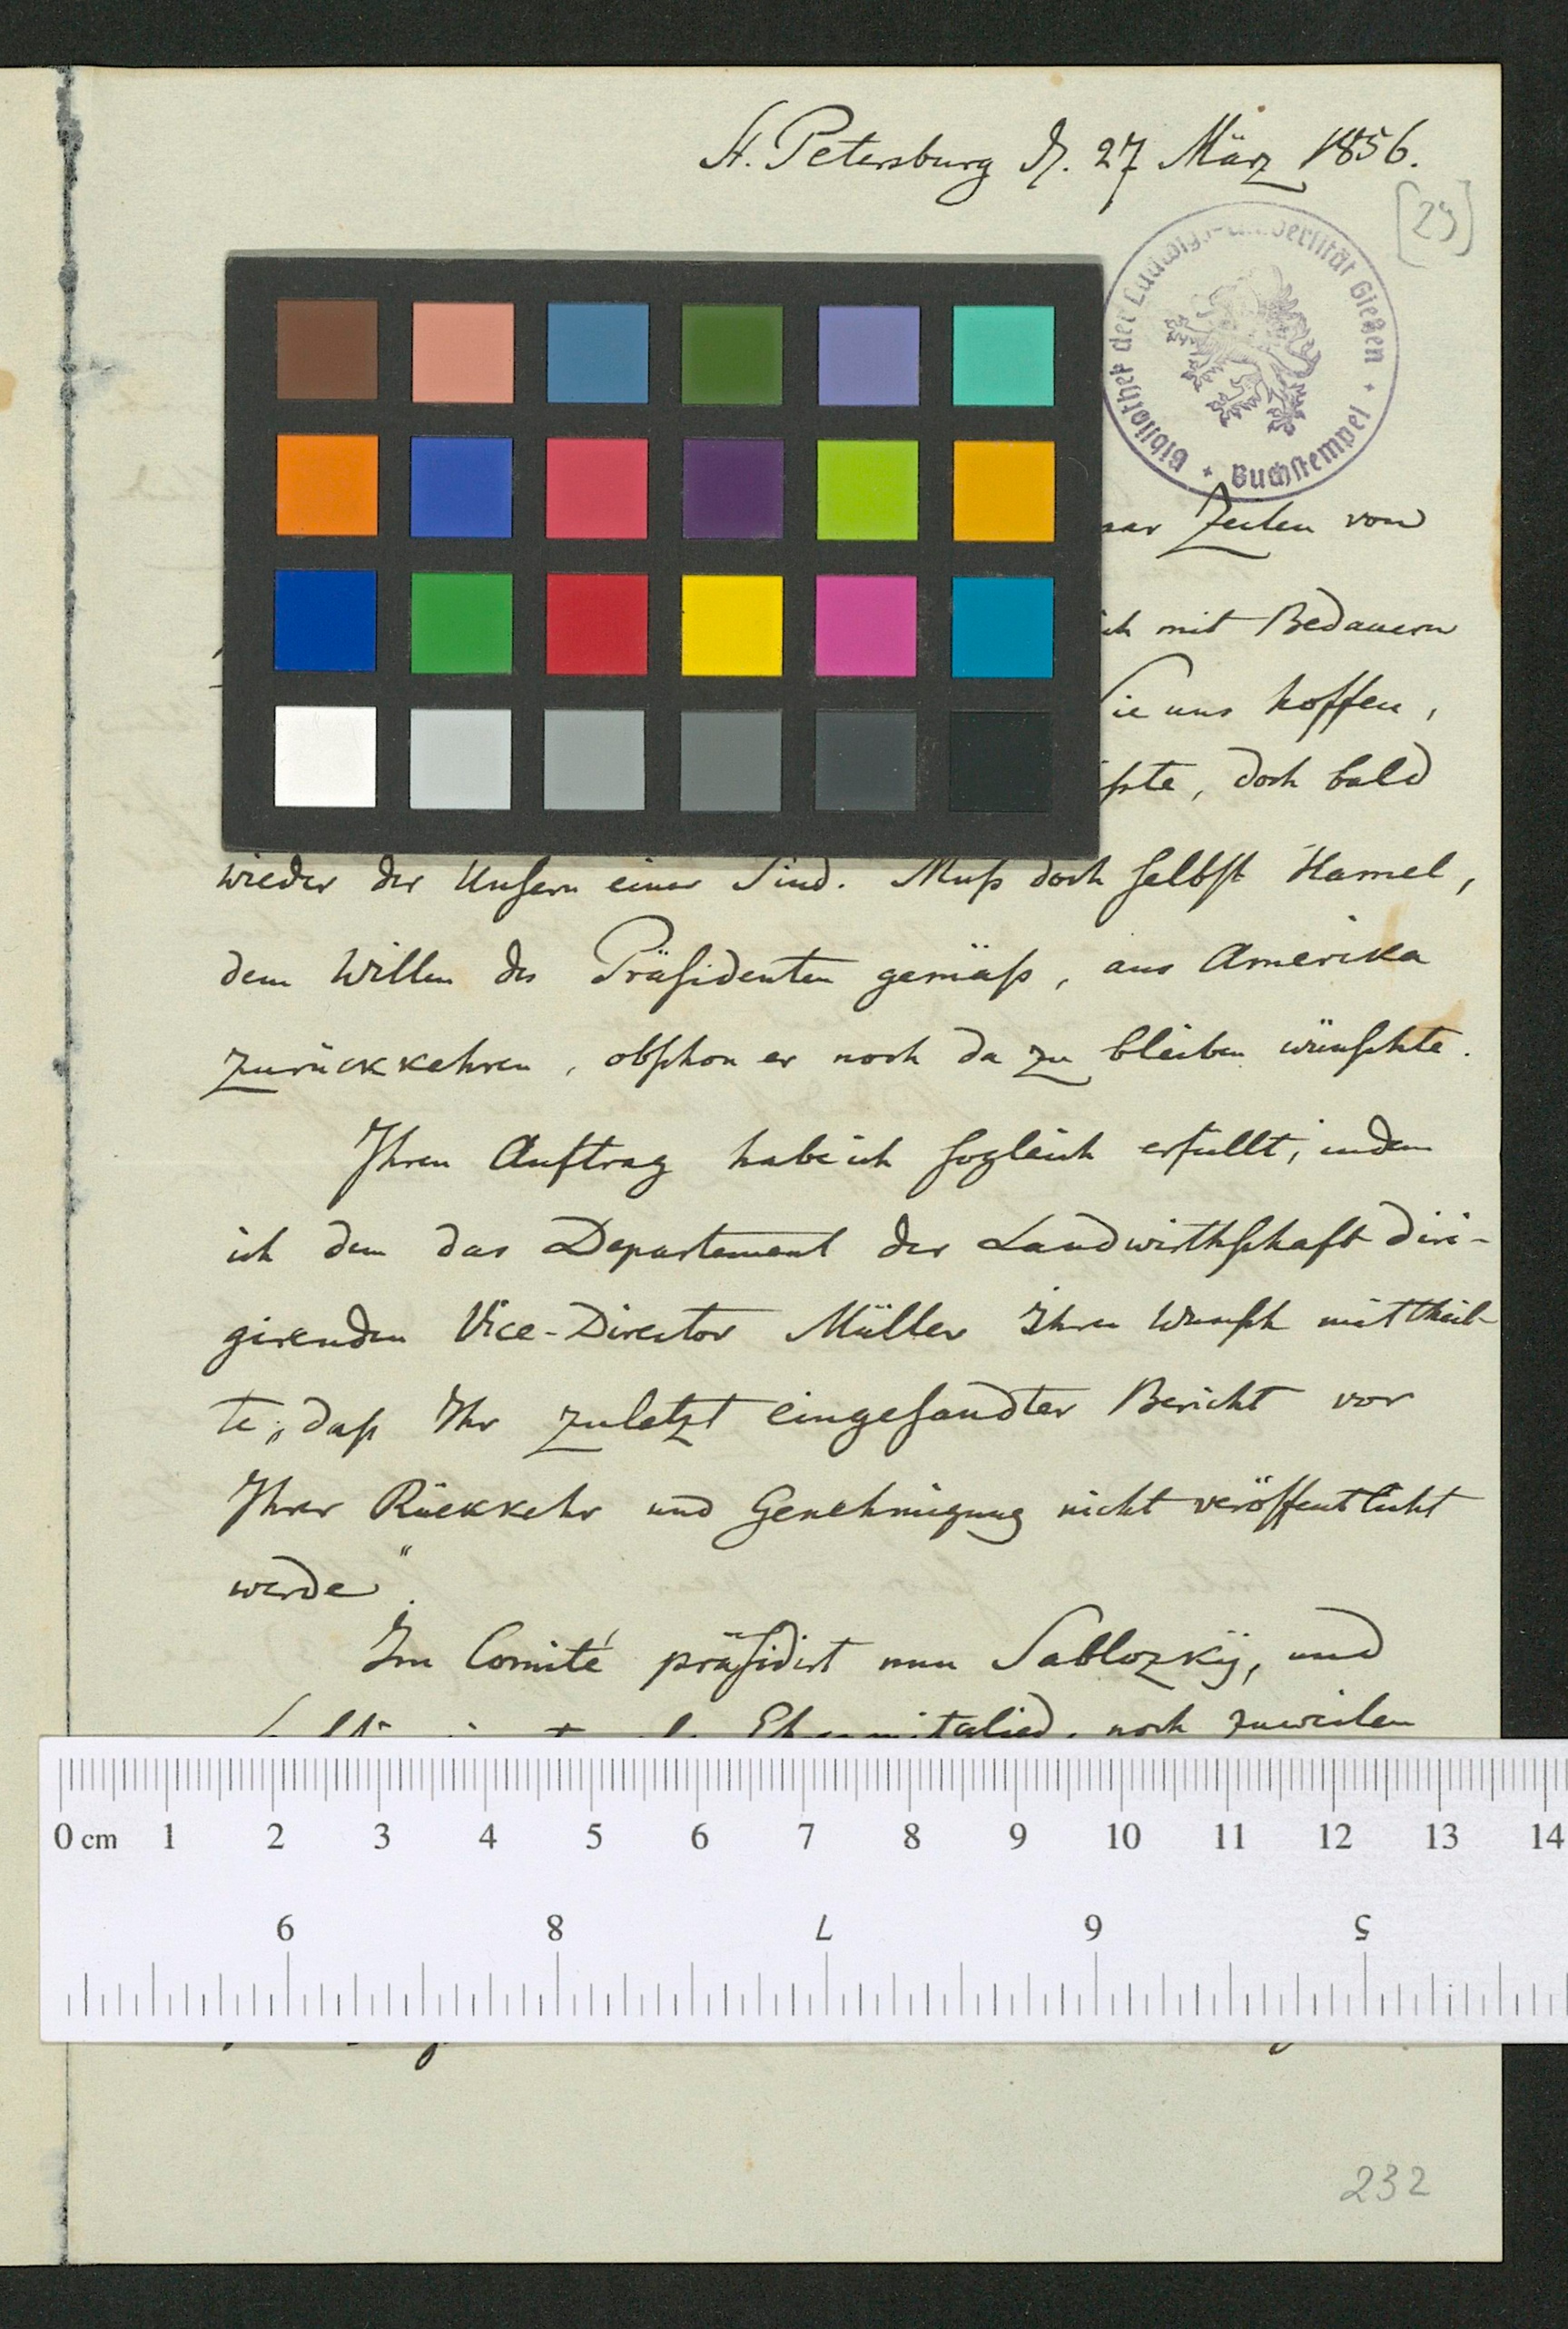 St. Petersburg d. 27 März 1856.
[29]
Bibliothek der Ludwigs-Universität Gießen + Buchstempel +
Zeilen von
mit Bedauern
Sie uns hoffen,
doch bald
wieder der Unsern einer sind. Muß doch selbst Hamel,
dem Willen des Präsidenten gemäß, aus Amerika
zurückkehren, obschon er noch da zu bleiben wünschte.
Ihren Auftrag habe ich sogleich erfüllt, indem
ich dem das Departement der Landwirthschaft diri-
girenden Vice-Director Müller Ihren Wunsch mittheil-
te, „daß Ihr zuletzt eingesandter Bericht vor
Ihrer Rückkehr und Genehmigung nicht veröffentlicht
werde“.
Im Comité präsidirt nun Sablozkij, und
Ehrenmitglied, noch zuweilen
0 cm 1 2 3 4 5 6 7 8 9 10 11 12 13 14
9 8 7 6 5
232